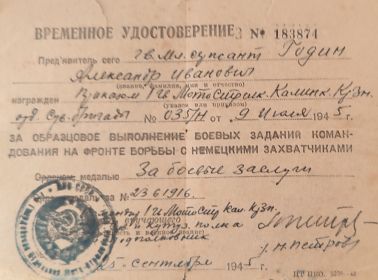 ВРЕМЕННОЕ УДОСТОВЕРЕНИЕ № 183874
Пред'явитель сего гв. мл. сержант Годин
Александр Иванович
(звание, фамилия, имя и отчество)
награжден Приказом 1 гв. МотоСтр Калинк. Кузн.
(указом или приказом)
№ 035/Н от 9 Июля 1945 г.
ЗА ОБРАЗЦОВОЕ ВЫПОЛНЕНИЕ БОЕВЫХ ЗАДАНИЙ КОМАН-
ДОВАНИЯ НА ФРОНТЕ БОРЬБЫ С НЕМЕЦКИМИ ЗАХВАТЧИКАМИ
медалью За боевые заслуги
№ 2361916
1 гв МотоСтр Кал. Кузн.
и кутуз. полка
подполковник Петров
5 сентября 1945 г.